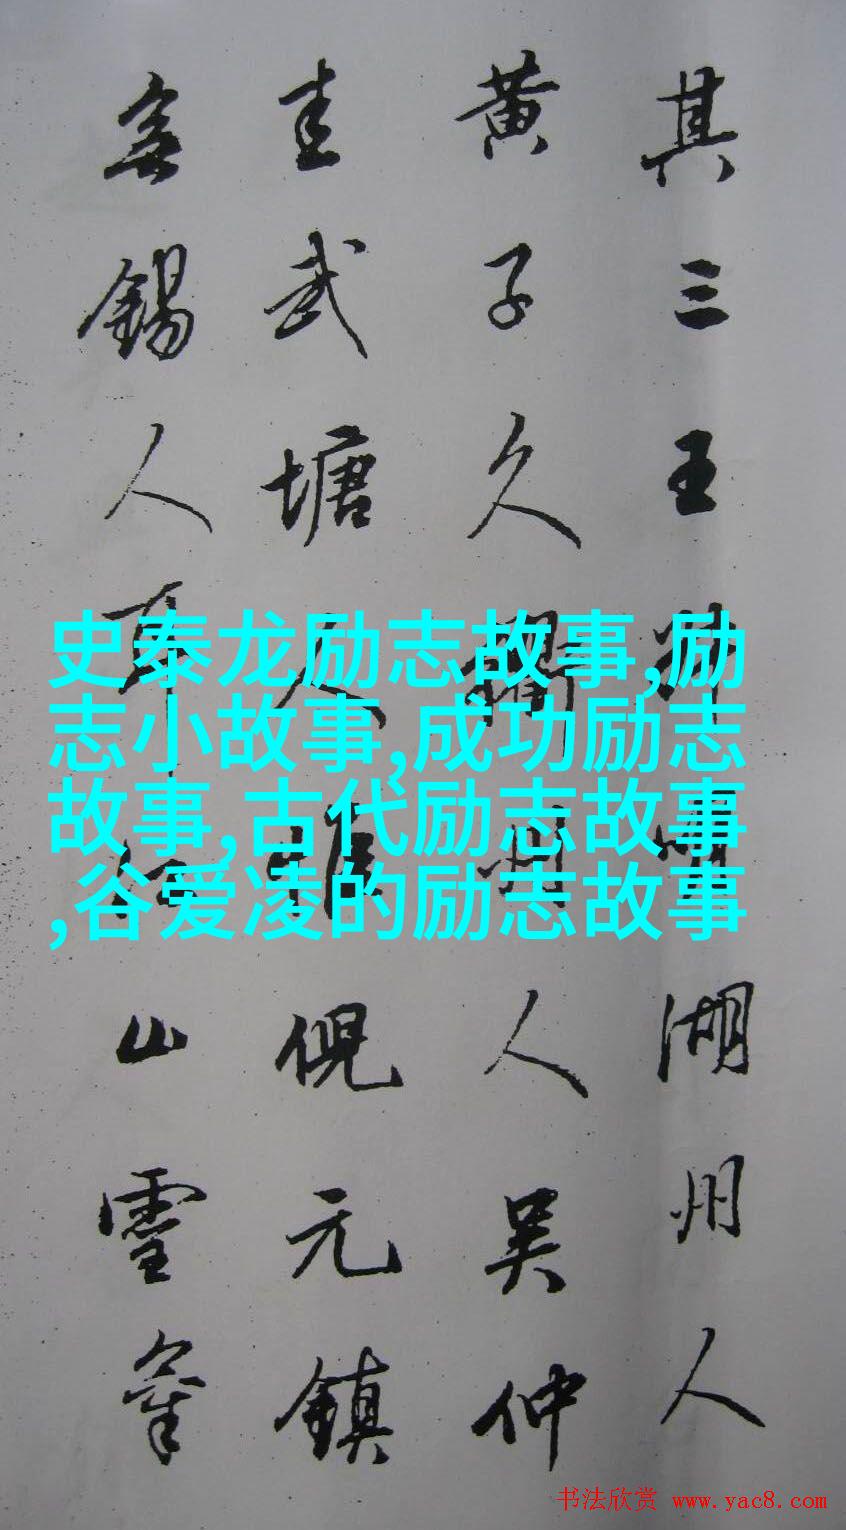 其三王叔明湖州人
黄子久衢州人吴仲
圭武塘人惟倪元鎮
無錫人耳江山靈氣
史泰龙励志故事,励
志小故事,成功励志
故事,古代励志故事
,谷爱凌的励志故事
书法欣赏 www.yac8.com